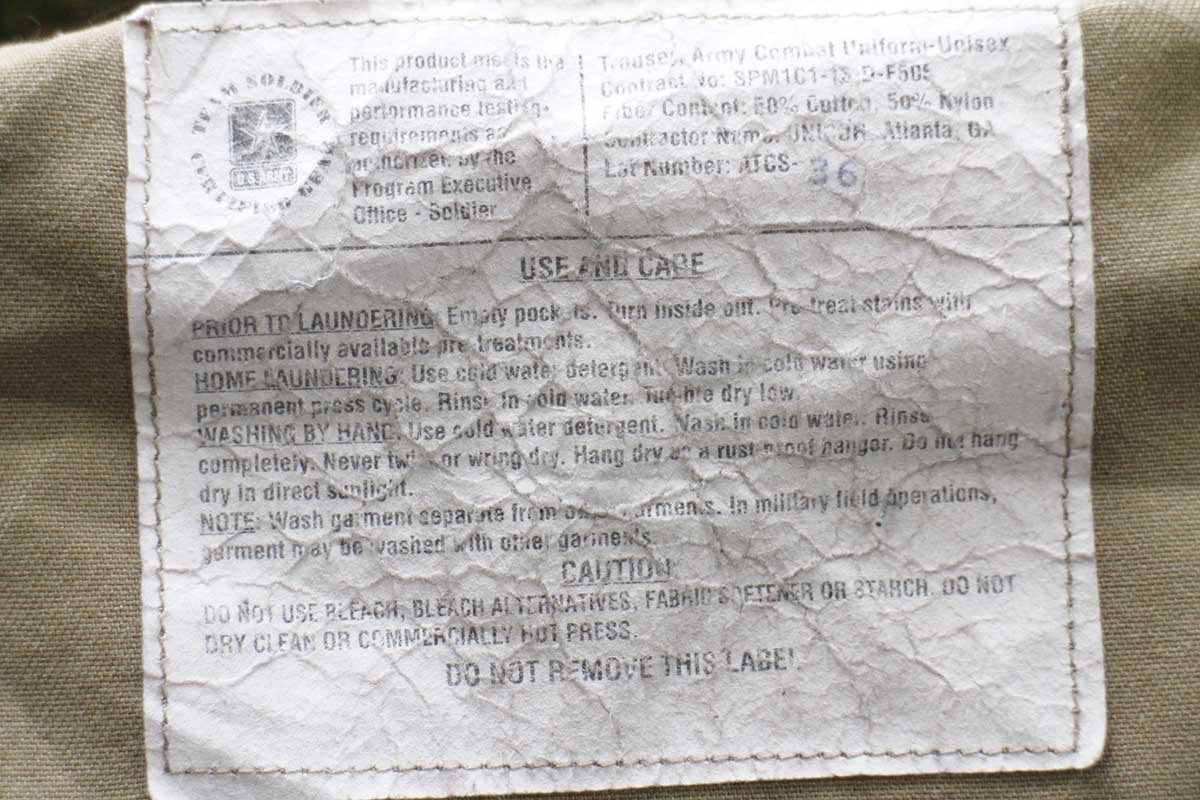 TEAM SOLDIER
CERTIFIED GEAR
U.S. ARMY
This product meets the
manufacturing and
performance testing
requirements as
authorized by the
Program Executive
Office - Soldier
Trouser, Army Combat Uniform-Unisex
Contract No: SPM1C1-13-D-F505
Fiber Content: 50% Cotton, 50% Nylon
Contractor Name: UNICOR, Atlanta, GA
Lot Number: ATCS- 36
USE AND CARE
PRIOR TO LAUNDERING: Empty pockets. Turn inside out. Pre-treat stains with
commercially available pre-treatments.
HOME LAUNDERING: Use cold water detergent. Wash in cold water using
permanent press cycle. Rinse in cold water. Tumble dry low.
WASHING BY HAND: Use cold water detergent. Wash in cold water. Rinse
completely. Never twist or wring dry. Hang dry on a rust-proof hanger. Do not hang
dry in direct sunlight.
NOTE: Wash garment separate from other garments. In military field operations,
garment may be washed with other garments.
CAUTION
DO NOT USE BLEACH, BLEACH ALTERNATIVES, FABRIC SOFTENER OR STARCH. DO NOT
DRY CLEAN OR COMMERCIALLY HOT PRESS.
DO NOT REMOVE THIS LABEL.